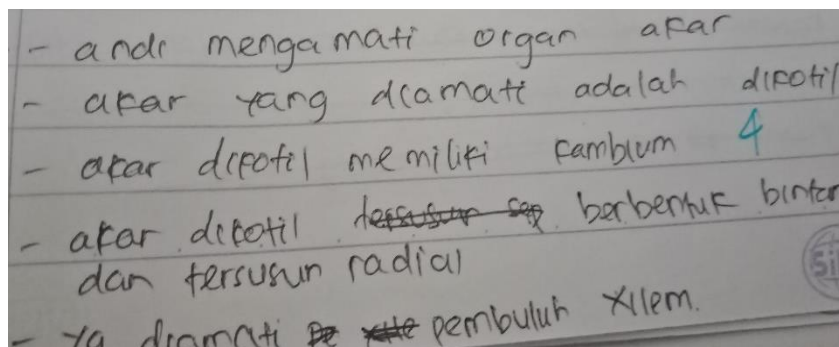 - andi mengamati organ akar
- akar yang diamati adalah dikotil
- akar dikotil memiliki kambium 4
- akar dikotil berbentuk bintan
dan tersusun radial
- yg diamati pembuluh xilem.